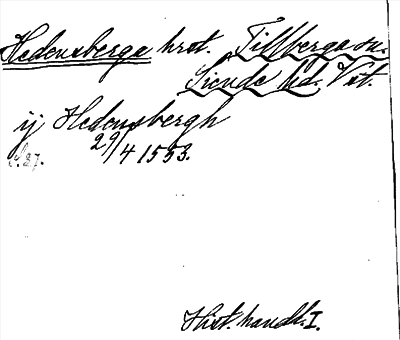 Hedensberga hrst. Tillberga sn.
Siende hd. Vst.
ij Hedensbergh
29/4 1553.
Hist. handl. I.